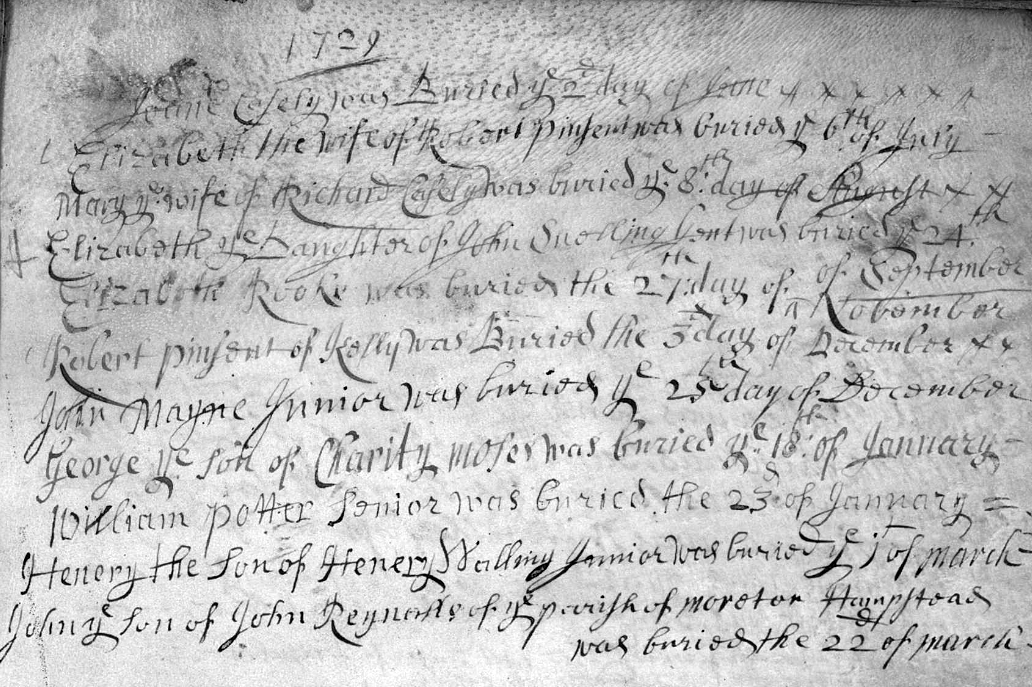 1729
Joane Casely was Buried ye 2d day of June x x x x x x
Elizabeth the wife of Robert Pinsent was buried ye 6th of July
Mary ye wife of Richard Casely was buried ye 8th day of August x x
Elizabeth ye Daughter of John Snelling Gent was buried ye 24th
of September
Elizabeth Rooke was buried the 27th day of November
Robert pinsent of Kelly was Buried the 3d day of December x x
John Mayne Junior was buried ye 25th day of December
George ye son of Charity moses was buried ye 18th of January
William potter senior was buried the 23 of January =
Henery the son of Henery Walling Junior was buried ye 1 of march
John ye son of John Reynolls of ye parish of moreton Hampstead
was buried the 22d of march